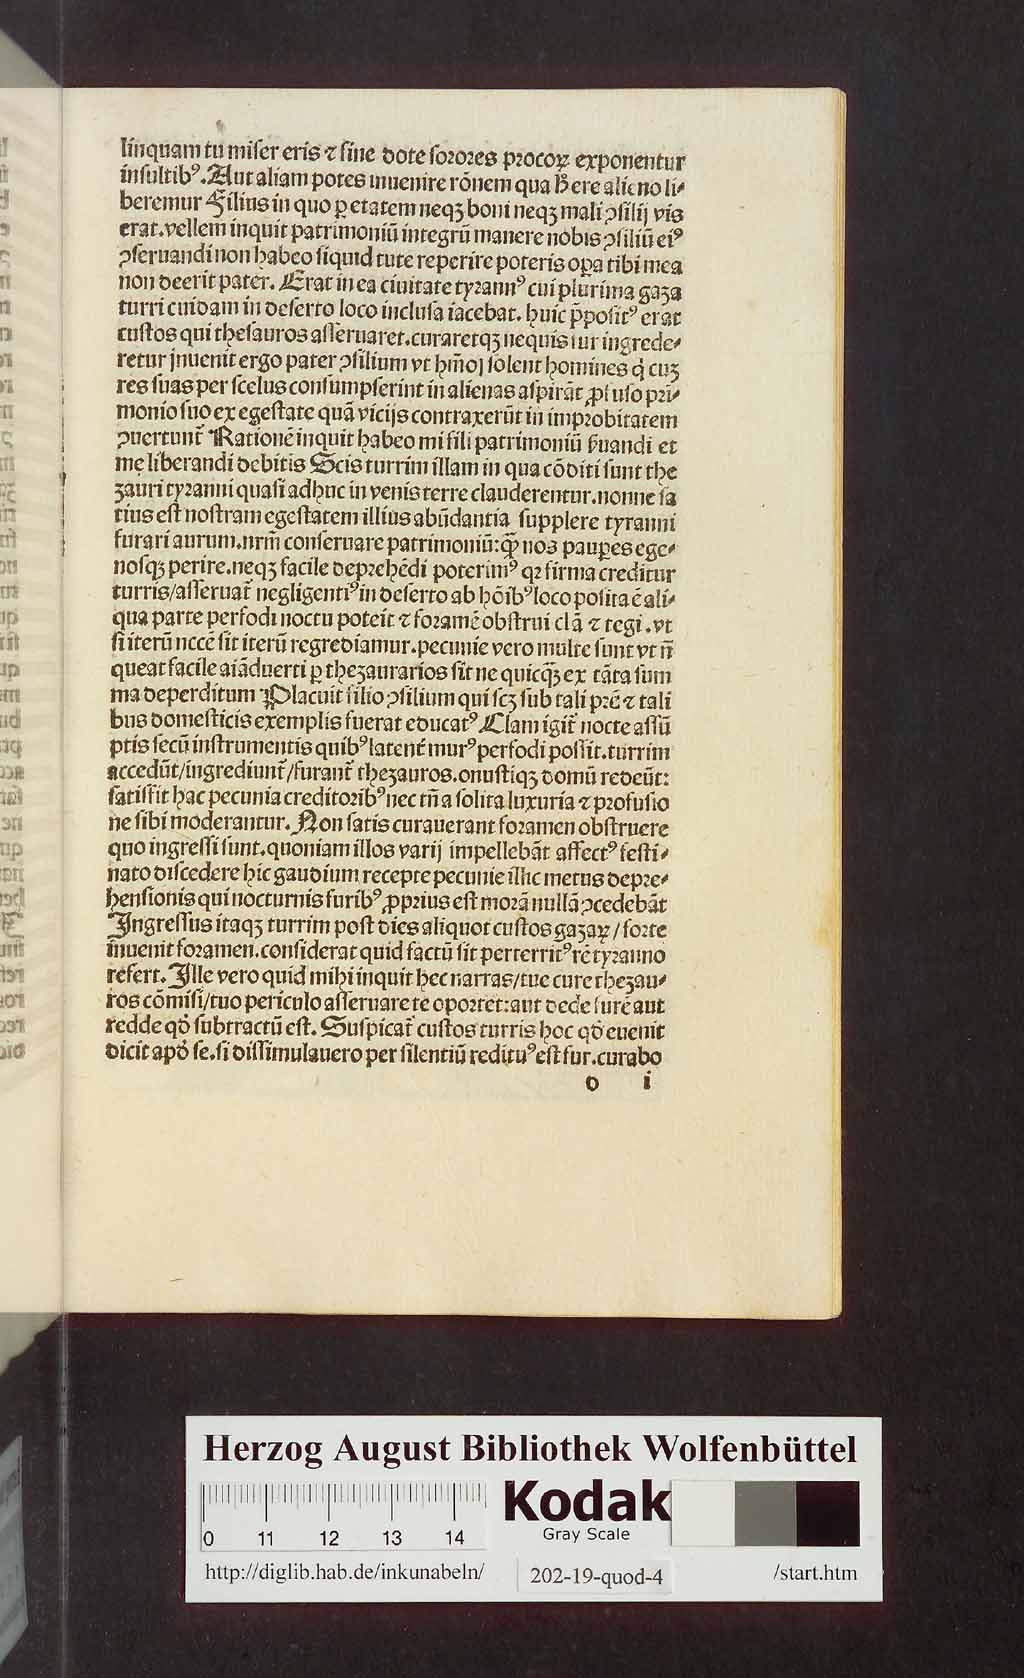 linquam tu miser eris ⁊ sine dote sorores procoꝝ exponentur
insultibꝰ. Aut aliam potes inuenire rōnem qua b̄ ere alieno li⸗
beremur Filius in quo ꝑ etatem neqꝫ boni neqꝫ mali ꝯsilij vis
erat. vellem inquit patrimoniū integrū manere nobis ꝯsiliū eiꝰ
ꝯseruandi non habeo siquid tute reperire poteris oꝑa tibi mea
non deerit pater. Erat in ea ciuitate tyrannꝰ cui plurima gaza
turri cuidam in deserto loco inclusa iacebat. huic p̄positꝰ erat
custos qui thesauros asseruaret. curaretqꝫ nequis fur ingrede⸗
retur jnuenit ergo pater ꝯsilium vt hm̄oj solent homines q̇ cuꝫ
res suas per scelus consumpserint in alienas aspirāt ꝓfuso pr̄i⸗
monio suo ex egestate quā vicijs contraxerūt in improbitatem
ꝯuertunt̄ Rationē inquit habeo mi fili patrimoniū ẜuandi et
mę liberandi debitis Scis turrim illam in qua cōditi sunt the
zauri tyranni quasi adhuc in venis terre clauderentur. nonne sa
tius est nostram egestatem illius abūdantia supplere tyranni
furari aurum. nrm̄ conseruare patrimoniū: qꝫ̄ nos pauꝑes ege⸗
nosqꝫ perire. neqꝫ facile deprehēdi poterimꝰ qꝛ firma creditur
turris/asseruat̄ negligentiꝰ in deserto ab hōibꝰ loco posita ē ali⸗
qua parte perfodi noctu poteit ⁊ foramē obstrui clā ⁊ tegi. vt
si iterū nccē sit iterū regrediamur. pecunie vero multe sunt vt n̄
queat facile aiāduerti ꝑ thezaurarios sit ne quicqꝫ̄ ex tāta sum
ma deperditum Placuit filio ꝯsilium qui scꝫ sub tali prē ⁊ tali
bus domesticis exemplis fuerat educatꝰ Clam igit̄ nocte assū
ptis secū instrumentis quibꝰ latent̄ murꝰ perfodi possit. turrim
accedūt/ingrediunt̄/furant̄ thezauros. onustiqꝫ domū redeūt:
satisfit hac pecunia creditoribꝰ nec tn̄ a solita luxuria ⁊ profusio
ne sibi moderantur. Non satis curauerant foramen obstruere
quo ingressi sunt. quoniam illos varij impellebāt affectꝰ festi⸗
nato discedere hic gaudium recepte pecunie illic metus depre⸗
hensionis qui nocturnis furibꝰ ꝓprius est morā nullā ꝯcedebāt
Jngressus itaqꝫ turrim post dies aliquot custos gazaꝝ/forte
inuenit foramen. considerat quid factū sit perterritꝰ rē tyranno
refert. Jlle vero quid mihi inquit hec narras/tue cure thezau⸗
ros cōmisi/tuo periculo asseruare te oportet: aut dede furē aut
redde qd̓ subtractū est. Suspicat̄ custos turris hoc qd̓ euenit
dicit apd̓ se. si dissimulauero per silentiū redituꝰ est fur. curabo
o i
Herzog August Bibliothek Wolfenbüttel
Kodak
Gray Scale
0 11 12 13 14
http://diglib.hab.de/inkunabeln/ 202-19-quod-4 /start.htm